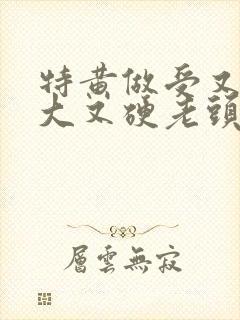 特黄做受又
大又硬老頭
層雲無寂